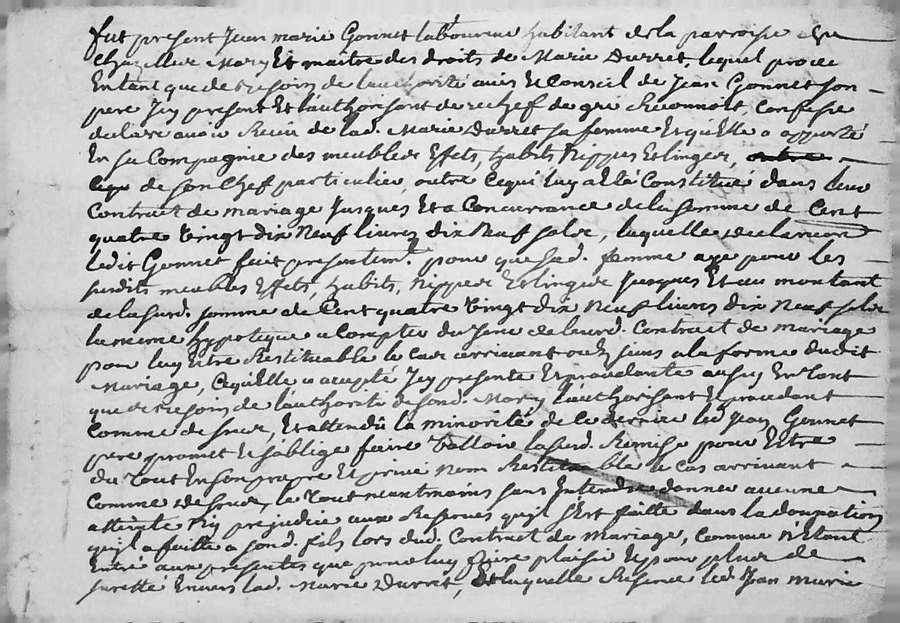 fut present Jean marie Gonnet laboureur habitant de la paroisse de
Chazelles Mary Et maitre des droits de Marie Durret, lequel procé
Entant que de besoin de lauthorité avis et Conseil de Jean Gonnet son
pere Icy present Et lauthorisent de rechef de gré Reconnoit, Confesse
declare avoir Recu de lad. Marie Durret sa femme Et qu'elle a apporté
En sa Compagnie des meubles Effets, habits Nippes Et linges,
Ceque de son Chef particulier, outre Cequi luy a Eté Constitué dans leur
Contract de mariage Jusques Et a Concurrance de la somme de Cent
quatre vingt dix Neuf livres dix Neuf sols, laquelle
ledit Gonnet fait presentemt pour que sad. femme aye pour les
susdits meubles Effets, habits, Nippes Et linges Jusques Et au montant
de la susd. somme de Cent quatre vingt dix Neuf livres dix Neuf sols
la meme hypoteque a Compter du jour de leurd. Contract de mariage
pour luy Etre Restituable le Cas arrivant a la forme dudit
Mariage, Ce qu'elle a accepté Icy presente Et aussy Entant
que de besoin de lauthorité de sond. Mary l'authorisant Et
Comme dessus, Et attendu la minorité de le dernier led. Jean Gonnet
pere promet Et s'oblige faire valloir lasusd. Remise pour Etre
du tout En son propre Et privé nom Restituable le cas arrivant
Comme dessus, le tout neantmoins sans Entendre donner aucune
atteinte Ny prejudice aux Reserves qu'il s'est faitte dans la donnation
qu'il a faitte a sond. fils lors dud. Contract de mariage, Comme N'Etant
Entré aux presentes que pour luy faire plaisir Et pour plus de
suretté Envers lad. Marie Durret, Et laquelle Reserve led. Jean marie